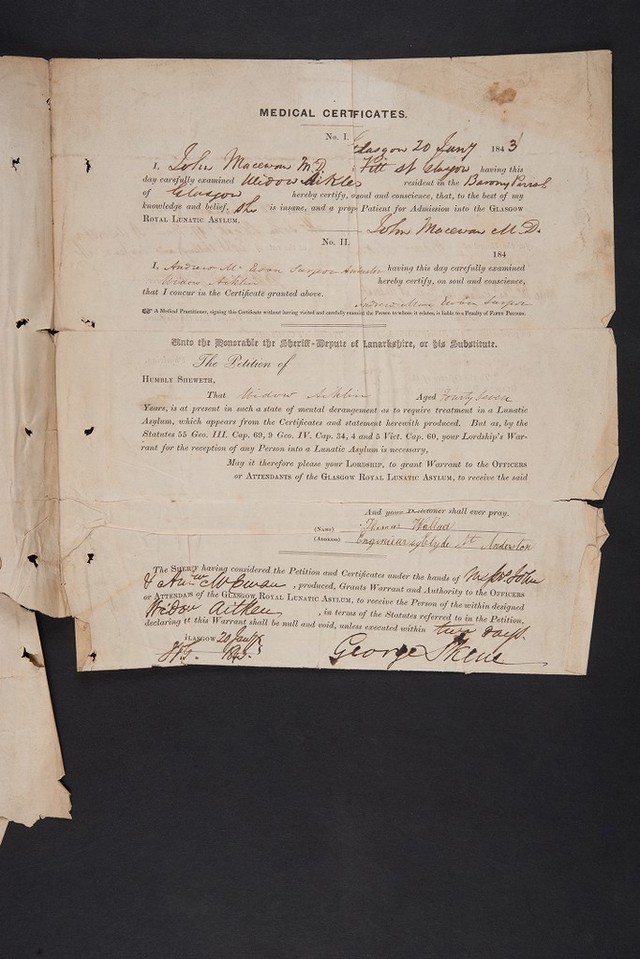 MEDICAL CERTIFICATES.
No. I.
Glasgow 20 Jany 1843
I, John Macewan M.D. Pitt st Glasgow having this
day carefully examined Widow Aitken resident in the Barony Parish
of Glasgow hereby certify, on soul and conscience, that, to the best of my
knowledge and belief, She is insane, and a proper Patient for Admission into the GLASGOW
ROYAL LUNATIC ASYLUM.
John Macewan M.D.
No. II.
184
I, Andrew Mc Ewan Surgeon Anderston having this day carefully examined
Widow Aitken hereby certify, on soul and conscience,
that I concur in the Certificate granted above.
Andrew Mac Ewan Surgeon
A Medical Practitioner, signing this Certificate without having visited and carefully examined the Person to whom it relates, is liable to a Penalty of FIFTY POUNDS.
Unto the Honorable the Sheriff-Depute of Lanarkshire, or his Substitute.
The Petition of
HUMBLY SHEWETH,
That Widow Aitken Aged Fourty Seven
Years, is at present in such a state of mental derangement as to require treatment in a Lunatic
Asylum, which appears from the Certificates and statement herewith produced. But as, by the
Statutes 55 Geo. III. Cap. 69, 9 Geo. IV. Cap. 34, 4 and 5 Vict. Cap. 60, your Lordship's War-
rant for the reception of any Person into a Lunatic Asylum is necessary,
May it therefore please your LORDSHIP, to grant Warrant to the OFFICERS
or ATTENDANTS of the GLASGOW ROYAL LUNATIC ASYLUM, to receive the said
And your Petitioner shall ever pray.
(NAME) Thomas Wallace
(ADDRESS) Enginiear Clyde St Anderston
The SHERIFF having considered the Petition and Certificates under the hands of Messrs John
& Andw McEwan, produced, Grants Warrant and Authority to the OFFICERS
or ATTENDANTS of the GLASGOW ROYAL LUNATIC ASYLUM, to receive the Person of the within designed
Widow Aitken, in terms of the Statutes referred to in the Petition,
declaring that this Warrant shall be null and void, unless executed within two days.
GLASGOW 20 Jany
George Skene